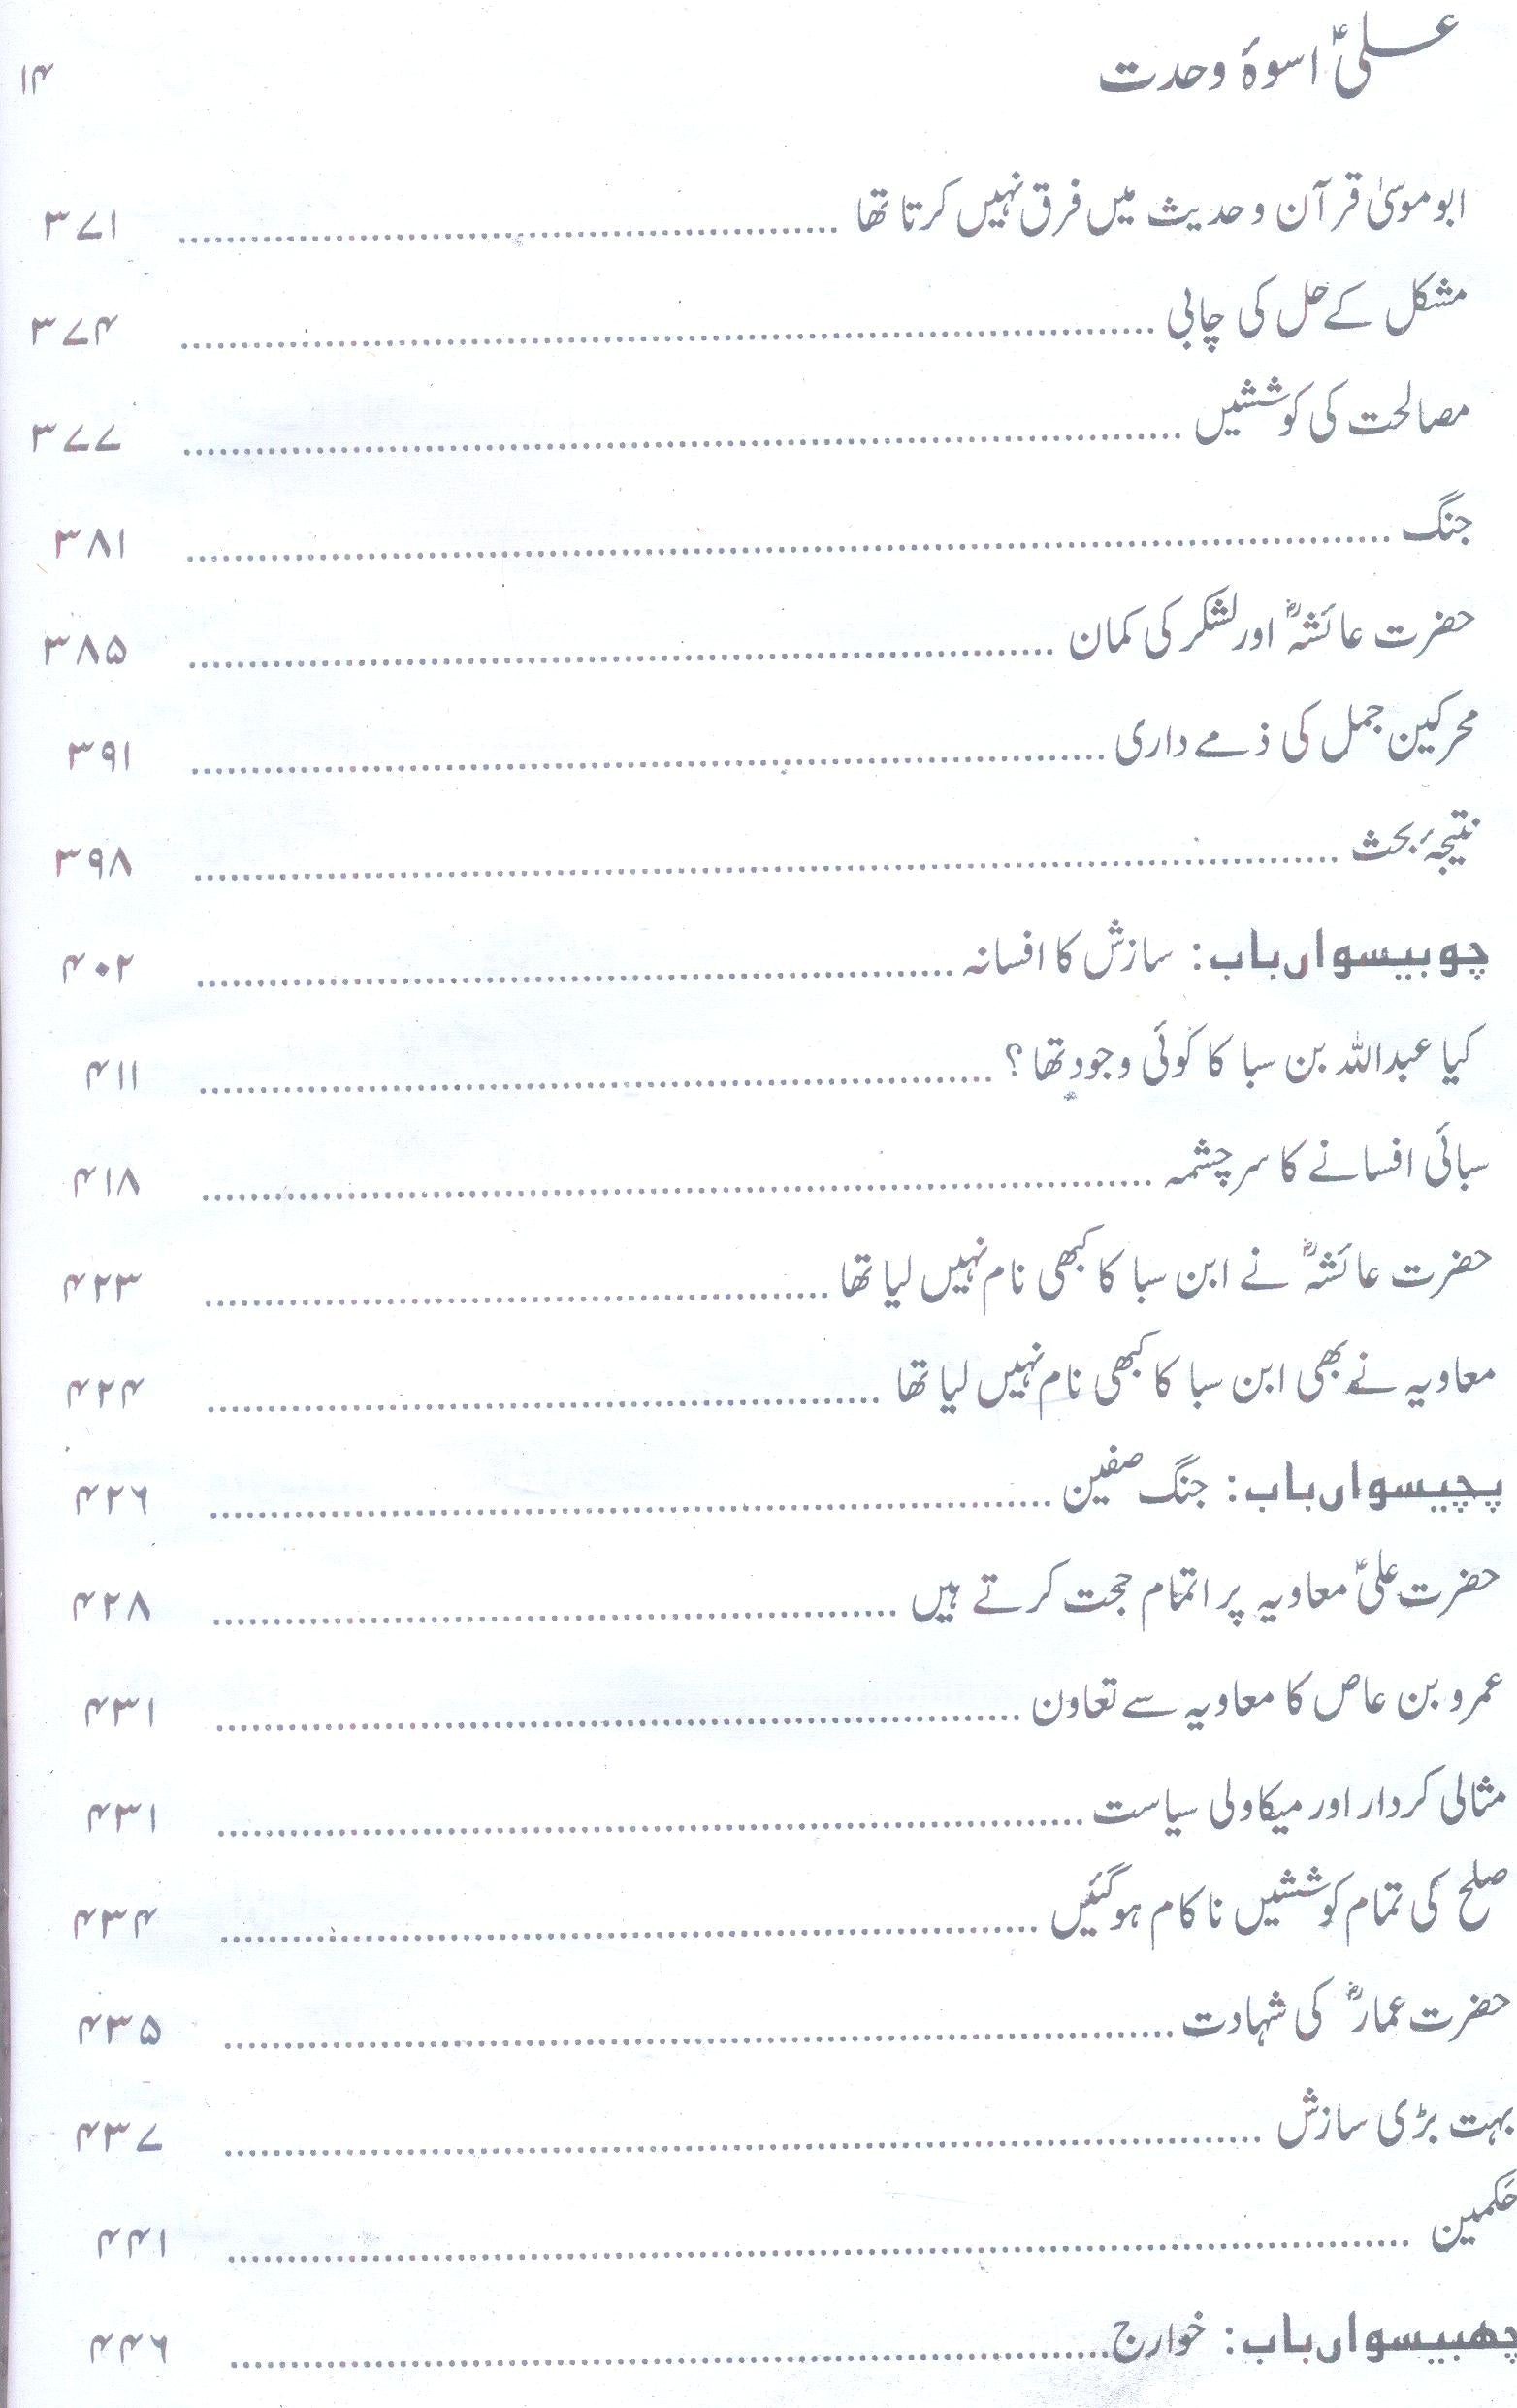 علیؑ اسوۂ وحدت ۱۴
ابو موسیٰ قرآن و حدیث میں فرق نہیں کرتا تھا ........ ۳۷۱
مشکل کے حل کی چابی ........ ۳۷۴
مصالحت کی کوششیں ........ ۳۷۷
جنگ ........ ۳۸۱
حضرت عائشہؓ اور لشکر کی کمان ........ ۳۸۵
محرکین جمل کی ذمے داری ........ ۳۹۱
نتیجۂ بحث ........ ۳۹۸
چوبیسواں باب: سازش کا افسانہ ........ ۴۰۲
کیا عبداللہ بن سبا کا کوئی وجود تھا؟ ........ ۴۱۱
سبائی افسانے کا سرچشمہ ........ ۴۱۸
حضرت عائشہؓ نے ابن سبا کا کبھی نام نہیں لیا تھا ........ ۴۲۳
معاویہ نے بھی ابن سبا کا کبھی نام نہیں لیا تھا ........ ۴۲۴
پچیسواں باب: جنگ صفین ........ ۴۲۶
حضرت علیؑ معاویہ پر اتمام حجت کرتے ہیں ........ ۴۲۸
عمرو بن عاص کا معاویہ سے تعاون ........ ۴۳۱
مثالی کردار اور میکاولی سیاست ........ ۴۳۱
صلح کی تمام کوششیں ناکام ہوگئیں ........ ۴۳۴
حضرت عمارؓ کی شہادت ........ ۴۳۵
بہت بڑی سازش ........ ۴۳۷
حَکمین ........ ۴۴۱
چھبیسواں باب: خوارج ........ ۴۴۶